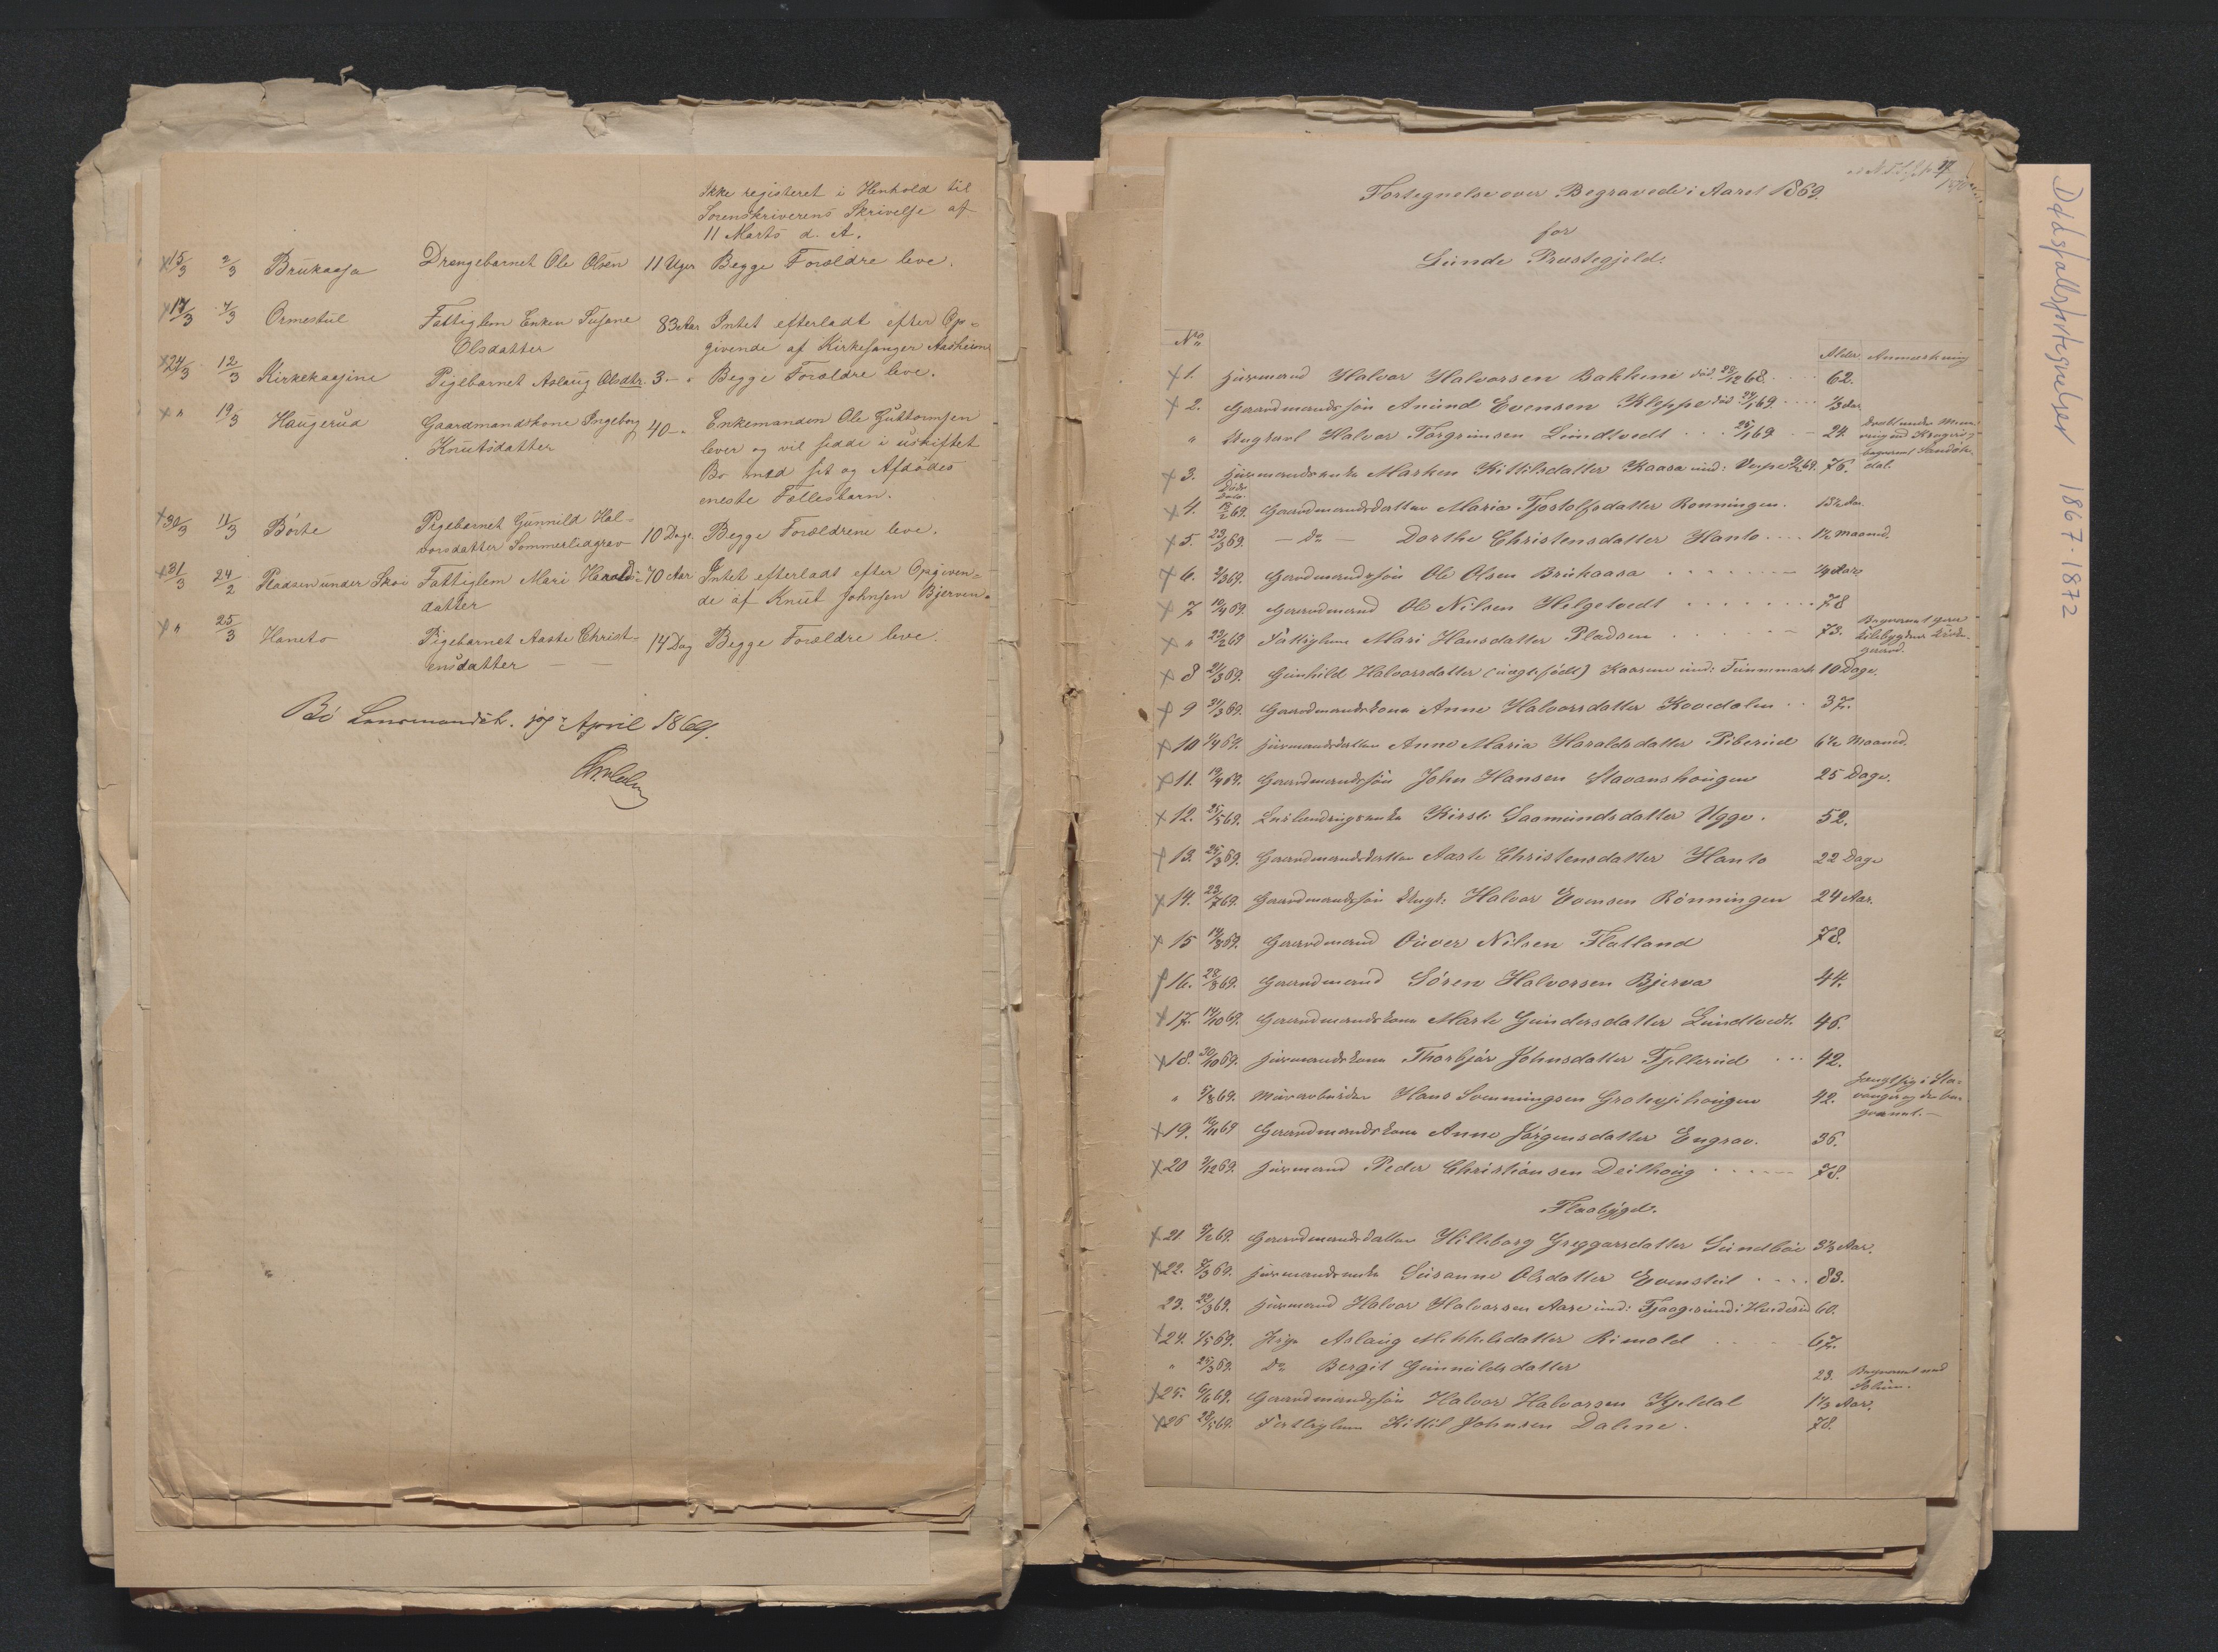 Ikke registeret i Henhold til
Sorenskriverens Skrivelse af
11 Marts d. A.
x 15/3 2/3 Brukaasa Drengebarnet Ole Olsen 11 Uger Begge Forældre leve.
x 17/3 7/3 Ormestul Fattiglem Enken Susane 83 Aar Intet efterladt efter Op-
Olsdatter givende af Kirkesanger Aasheim
x 24/3 12/3 Kirkekaasine Pigebarnet Aslaug Olsdtr. 3 — " Begge Forældre leve.
x " 19/3 Haugerud Gaardmandskone Ingeborg 40 — " Enkemanden Ole Guttormsen
Knutsdatter lever og vil sidde i uskiftet
Bo med sit og Afdødes
eneste Fællesbarn.
x 30/3 11/3 Børte Pigebarnet Gunnild Hal-
vorsdatter Sommerlidgrav 10 Dage. Begge Forældrene leve.
x 31/3 24/2 Pladsen under Skoi Fattiglem Mari Harolds- 70 Aar Intet efterladt efter Opgiven-
datter de af Knut Johnsen Bjerven.
x " 25/3 Haneto Pigebarnet Aaste Christ- 14 Dag Begge Forældre leve.
ensdatter — —
Bø Lensmandsb. April 1869.
Fortegnelse over Begravede i Aaret 1869.
for
Lunde Præstegjeld.
No
Alder. Anmærkning
x 1. Husmand Halvor Halvorsen Bakkene død 28/12 68. 62.
x 2. Gaardmandssøn Anund Evensen Kleppe død 29/1 69. 1/3 Aar
" Ungkarl Halvor Torgrimsen Lundtvedt 25/1 69 24.
x 3. Husmandsenke Marken Kittilsdatter Kaasa 69. 76.
Døds
Dato
x 4. 69. Gaardmandsdatter Maria Tjostolfsdatter Rønningen. 13 1/2 Aar
x 5. 23/3 69. — do — Dorthe Christensdatter Hanto 1 1/2 Maaned.
x 6. 2/3 69. Gaardmandssøn Ole Olsen Brukaasa 1/4 Aar
x 7 10/4 69. Gaardmand Ole Nilsen Helgetvedt 78
x " 24/2 69 Fattiglem Mari Hansdatter Pladsen 73.
x 8 21/3 69. Gunhild Halvorsdatter (uægte født) Kaasene 10 Dage.
x 9 31/3 69. Gaardmandskone Anne Halvorsdatter Kovedalen 37.
x 10 1/4 69. Husmandsdatter Anne Maria Haraldsdatter Piberud 6 1/2 Maaned.
x 11. 19/4 69. Gaardmandssøn John Hansen Stavanshougen 25 Dage.
x 12. 25/5 69. Kirsti Saamundsdatter Ugge. 52.
x 13. 25/3 69. Gaardmandsdatter Aaste Christensdatter Hanto 22 Dage
x 14. 23/7 69. Gaardmandssøn Ungk: Halvor Evensen Rønningen 24 Aar.
x 15 14/8 69. Gaardmand Ouver Nilsen Flatland 78.
x 16. 28/8 69. Gaardmand Søren Halvorsen Bjerva 44.
x 17. 14/10 69. Gaardmandskone Marte Gundersdatter Lundtvedt. 46.
x 18. 30/10 69. Husmandskone Thorbjør Johnsdatter Fjellerud 42.
" 5/8 69. Murarbeider Hans Svenningsen 42.
x 19. 69 Gaardmandskone Anne Jørgensdatter Engrav. 36.
x 20 9/12 69. Husmand Peder Christiansen Deilhoug 78.
Flaabygd.
x 21. 69. Gaardmandsdatter Hilleborg Greggarsdatter Sundbøe 3 1/2 Aar.
x 22. 7/3 69. Husmandsenke Susanne Olsdatter 83.
23. 22/3 69. Husmand Halvor Halvorsen Aase 60.
x 24. 1/5 69. Pige Aslaug Mikkelsdatter Rimold 67.
" 25/3 69. Do Bergit Gunnuldsdatter 23. Begravet ved
Solum.
x 25. 6/6 69. Gaardmandssøn Halvor Halvorsen Kjeldal 1 1/3 Aar.
x 26 28/5 69. Fattiglem Kittil Johnsen Dalene. 78.
Dødsfallsfortegnelser 1867-1872